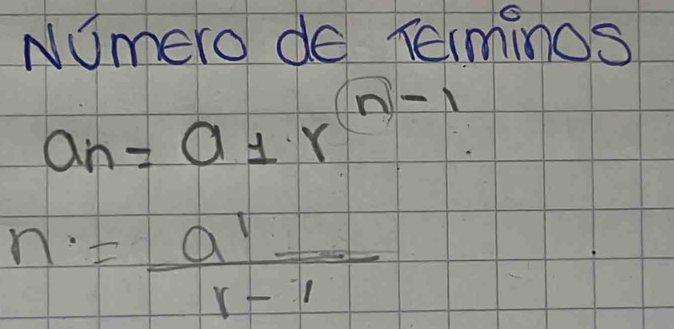 NÚMErO dE TErminOS
an = a1 · r^(n-1)
n · = a' / r - 1